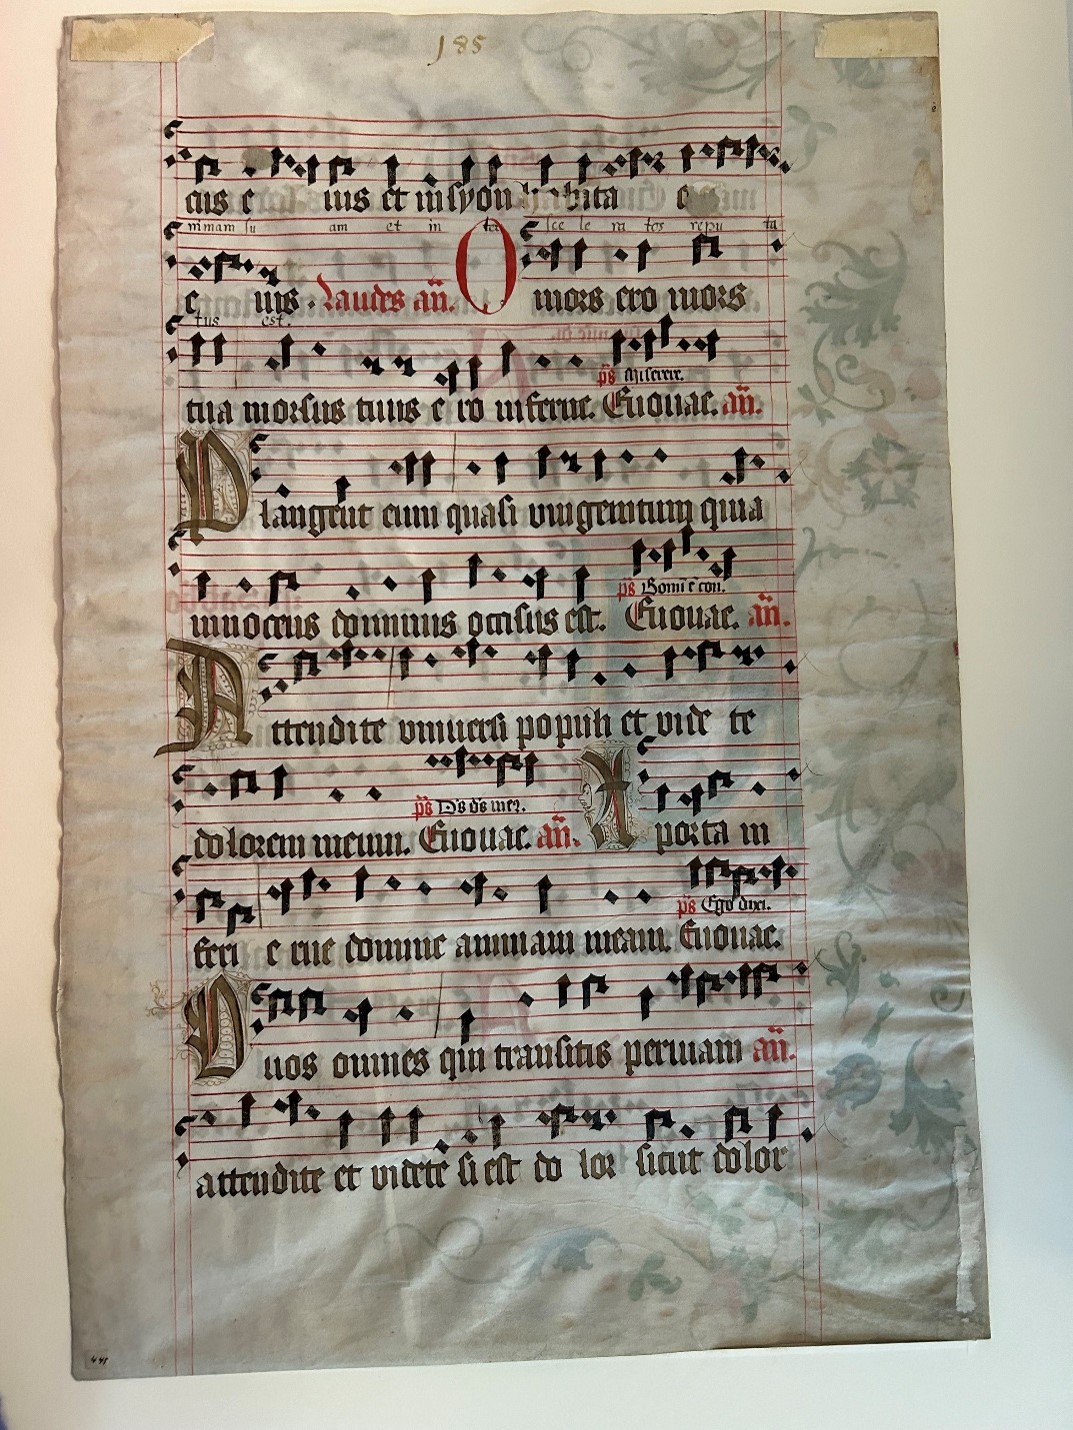 185
eius e ius et in syon habita o
nimam su am et in ter sce le ra tos repu ta
e ius. Laudes an̄. O mors ero mors
tus est.
ps Miserere.
tua morsus tuus e ro inferne. Euouae. an̄.
Plangent eum quasi vnigenitum quia
ps Bonū ē con.
innocens dominus occisus est. Euouae. an̄.
Attendite vniuersi populi et vide te
ps Ds ds me9.
dolorem meum. Euouae. an̄. A porta in
ps Ego dixi.
feri e rue domine animam meam. Euouae.
O uos omnes qui transitis per uiam an̄.
attendite et videte si est do lor sicut dolor